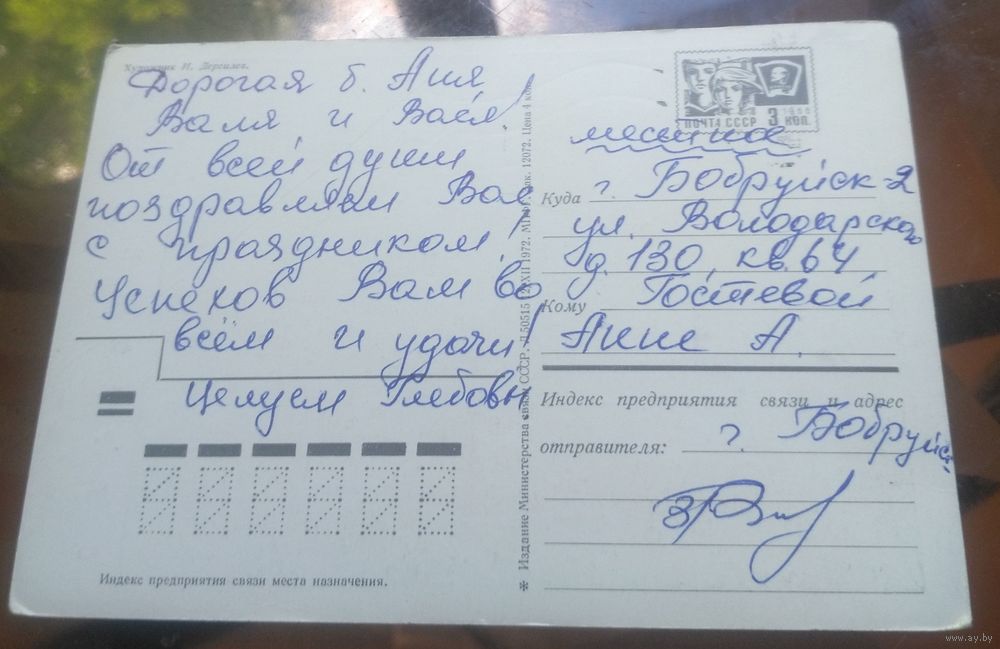 Художник И. Дергилев.
Дорогая б. Аня
Валя и Вася!
От всей души
поздравляем Вас
с праздником!
Успехов Вам во
всём и удачи!
Целуем Глебовы
Индекс предприятия связи места назначения.
Издание Министерства связи СССР. 12/XII 1972. Зак. 12072. Цена 4 коп.
ПОЧТА СССР 3 КОП.
местное
Куда г. Бобруйск-2
ул. Володарского
д. 130, кв. 64
Кому Гостевой
Анне А.
Индекс предприятия связи и адрес
отправителя: г. Бобруйск
www.ay.by